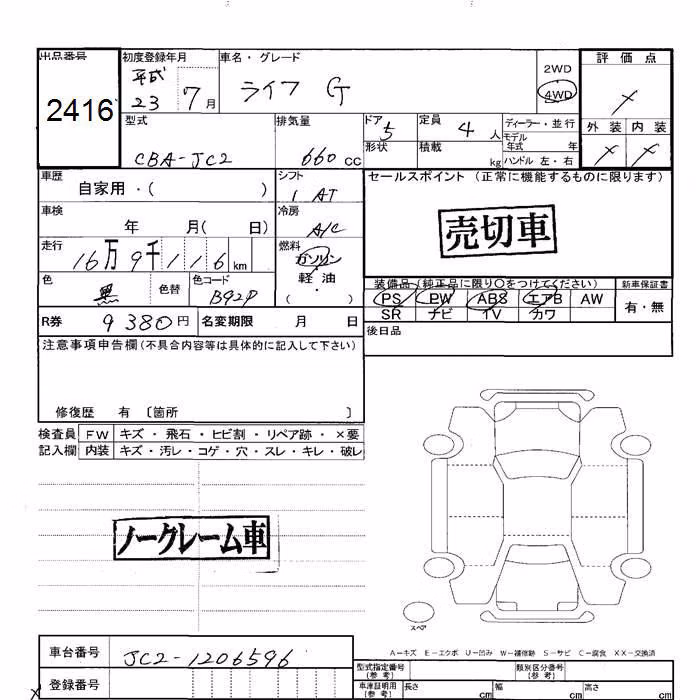 出品番号 初度登録年月 車名・グレード 評価点
2416 平成 23 7月 ライフ G 2WD 4WD
型式 CBA-JC2 排気量 660 cc ドア 5 定員 4人 ディーラー・並行 外装 内装
形状 積載 kg モデル年式 年 ハンドル 左・右
車歴 自家用・( ) シフト 1 AT セールスポイント (正常に機能するものに限ります)
車検 年 月( 日) 冷房 A/C 売切車
走行 16万9千116 km 燃料 ガソリン 軽油 ( )
色 黒 色替 色コード B92P 装備品(純正品に限り〇をつけてください) 新車保証書
PS PW ABS エアB AW 有・無
SR ナビ TV カワ
R券 9380円 名変期限 月 日 後日品
注意事項申告欄(不具合内容等は具体的に記入して下さい)
修復歴 有 〔箇所 〕
検査員 FW キズ・飛石・ヒビ割・リペア跡・×要
記入欄 内装 キズ・汚レ・コゲ・穴・スレ・キレ・破レ
ノークレーム車
スペア
A-キズ E-エクボ U-凹み W-補修跡 S-サビ C-腐食 XX-交換済
車台番号 JC2-1206596 型式指定番号(参考) 類別区分番号(参考)
登録番号 車庫証明用(参考) 長さ cm 幅 cm 高さ cm